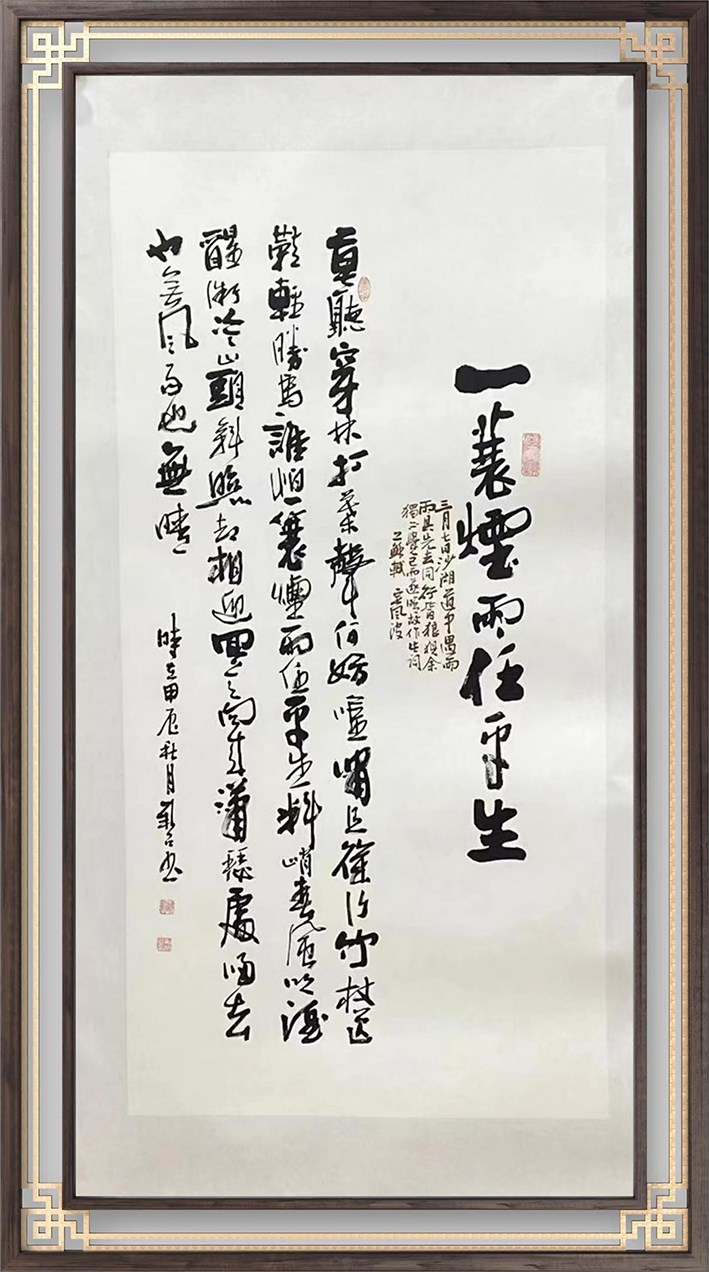 一蓑煙雨任平生
三月七日沙湖道中遇雨
雨具先去同行皆狼狽余
獨不覺已而遂晴故作此詞
蘇軾 定風波
莫聽穿林打葉聲何妨唫嘯且徐行竹杖芒
鞋輕勝馬誰怕一蓑煙雨任平生料峭春風吹酒
醒微冷山頭斜照却相迎回首向來瀟瑟處歸去
也無風雨也無晴
時在甲辰秋月 書